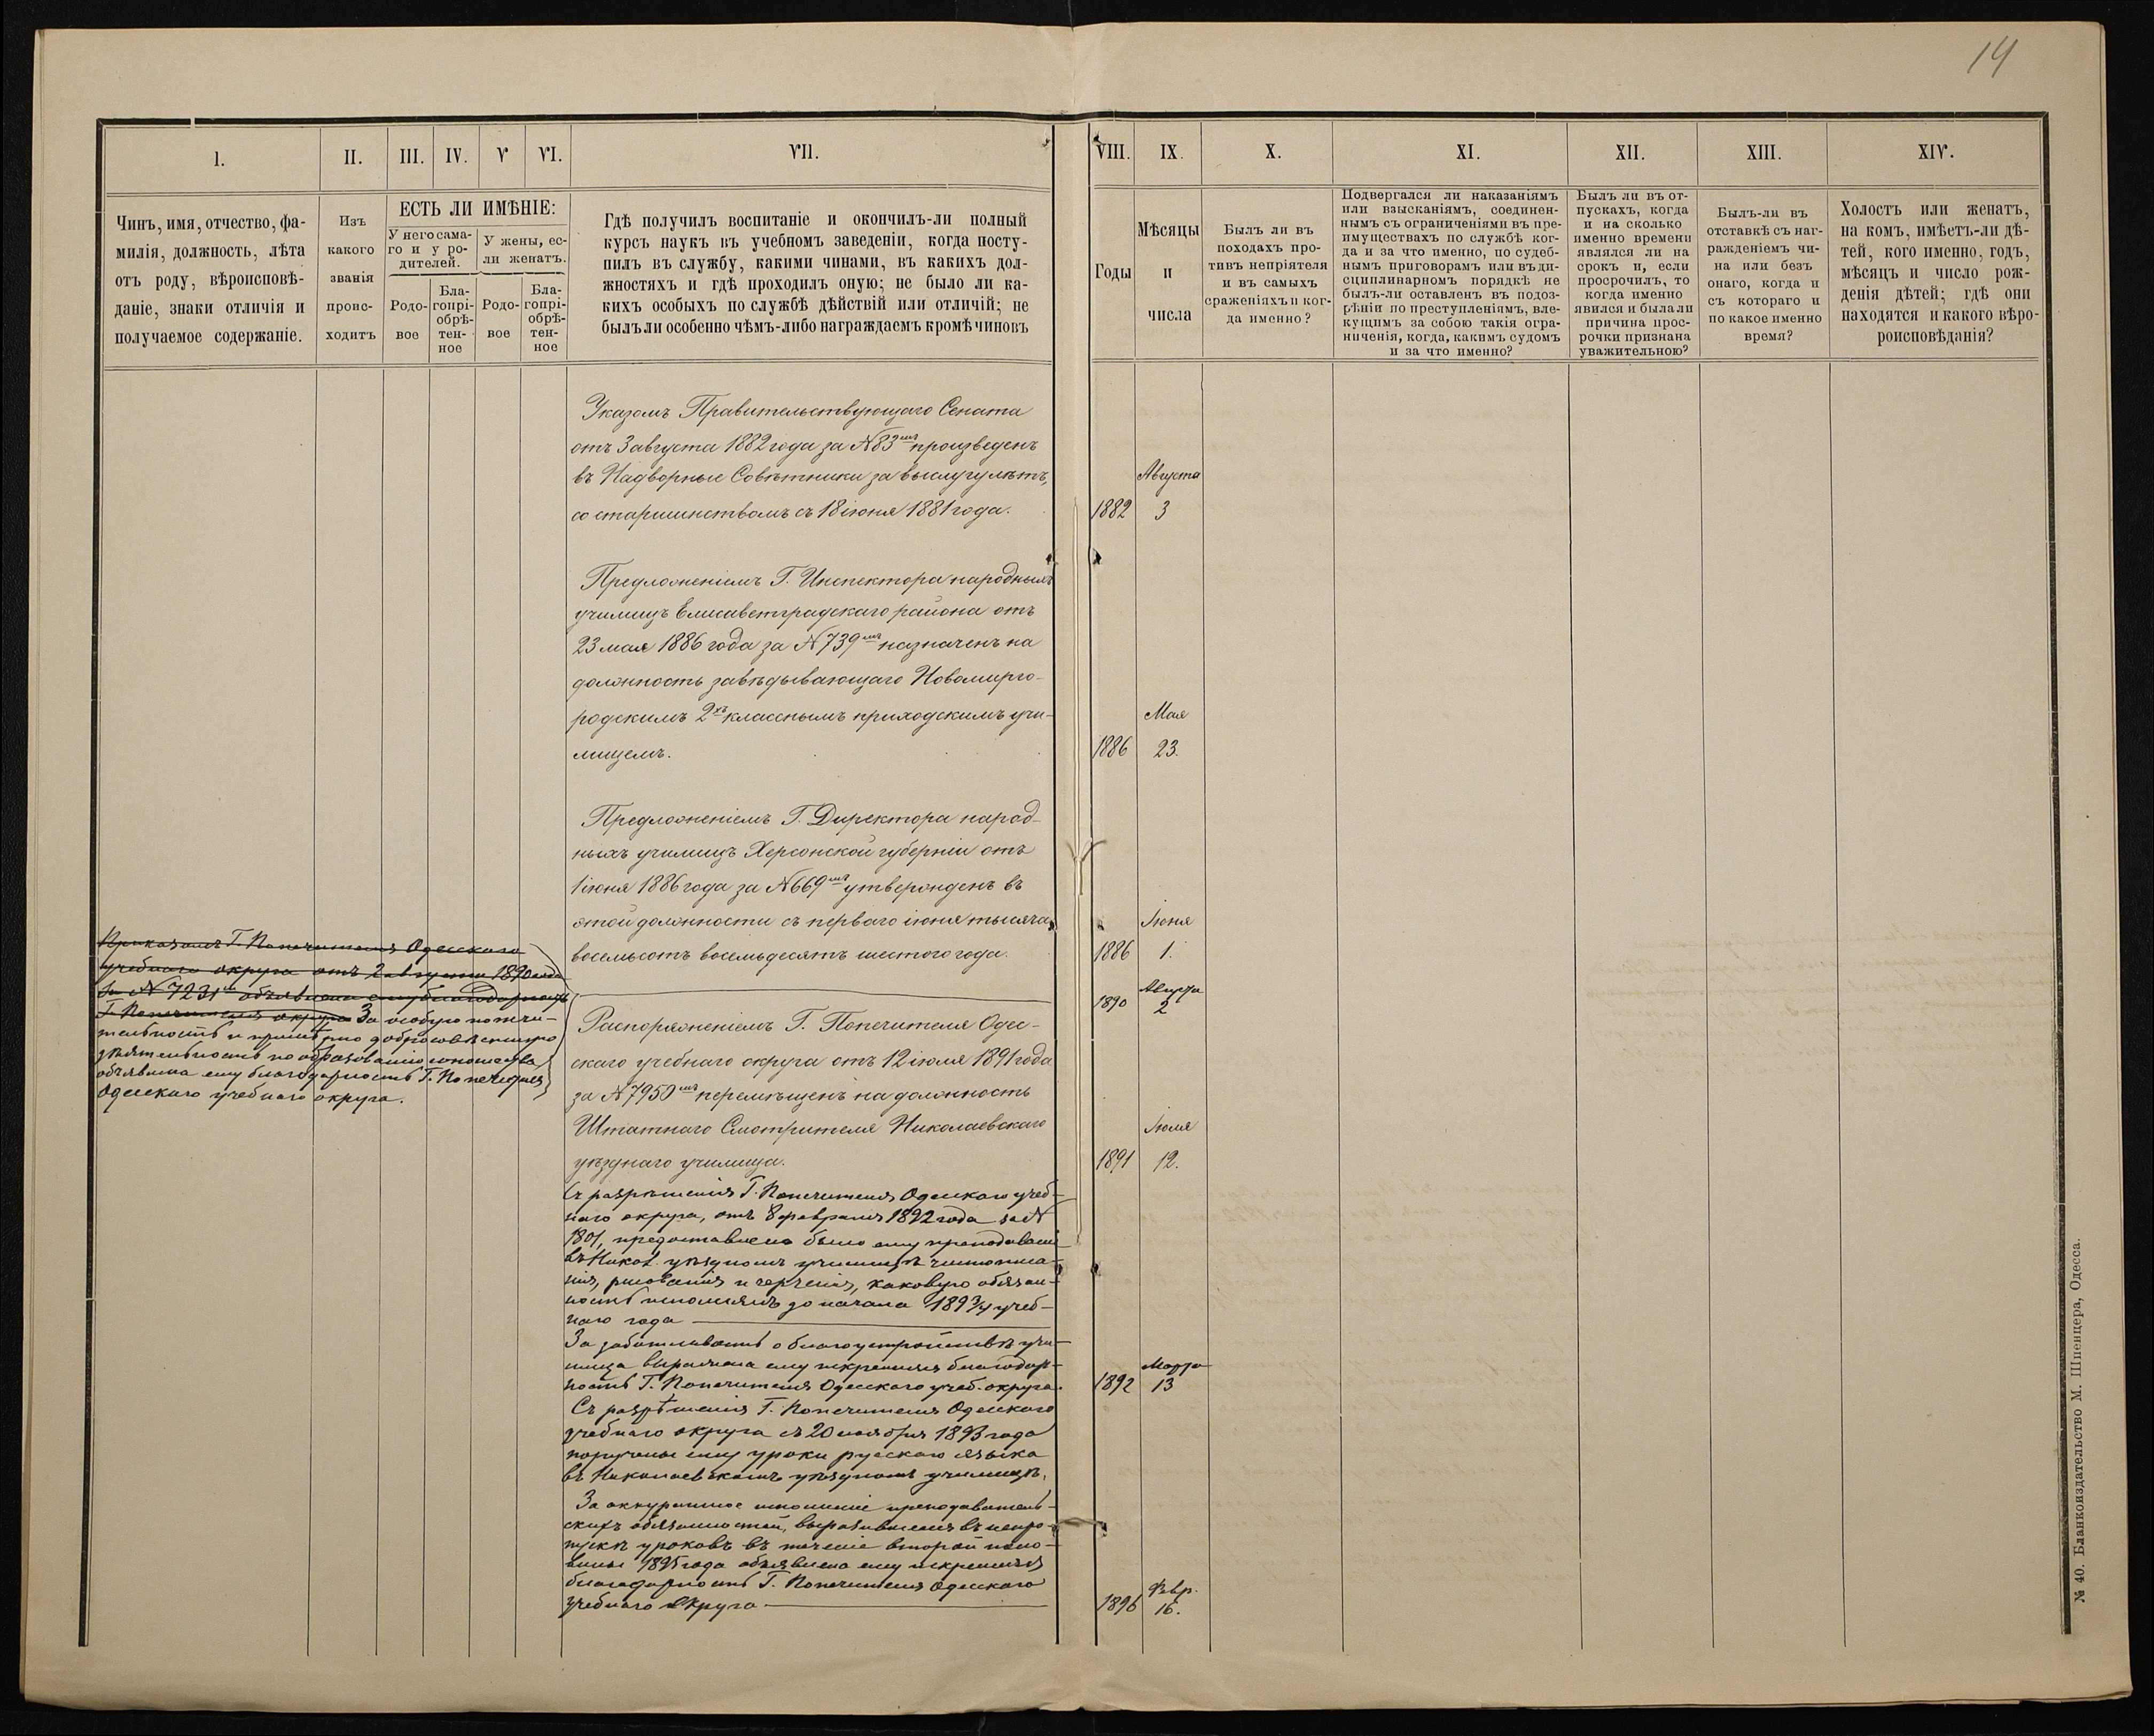 14
I.
II.
III.
IV.
V
VI.
VII.
VIII.
IX.
X.
XI.
XII.
XIII.
XIV.
Чинъ, имя, отчество, фа-
милія, должность, лѣта
отъ роду, вѣроисповѣ-
даніе, знаки отличія и
получаемое содержаніе.
Изъ
какого
званія
проис-
ходитъ
ЕСТЬ ЛИ ИМѢНІЕ:
У него сама-
го и у ро-
дителей.
У жены, ес-
ли женатъ.
Родо-
вое
Бла-
гопрі-
обрѣ-
тен-
ное
Родо-
вое
Бла-
гопрі-
обрѣ-
тен-
ное
Гдѣ получилъ воспитаніе и окончилъ-ли полный
курсъ наукъ въ учебномъ заведеніи, когда посту-
пилъ въ службу, какими чинами, въ какихъ дол-
жностяхъ и гдѣ проходилъ оную; не было ли ка-
кихъ особыхъ по службѣ дѣйствій или отличій; не
былъ ли особенно чѣмъ-либо награждаемъ кромѣ чиновъ
Годы
Мѣсяцы
и
числа
Былъ ли въ
походахъ про-
тивъ непріятеля
и въ самыхъ
сраженіяхъ и ког-
да именно?
Подвергался ли наказаніямъ
или взысканіямъ, соединен-
нымъ съ ограниченіями въ пре-
имуществахъ по службѣ ког-
да и за что именно, по судеб-
нымъ приговорамъ или въ ди-
сциплинарномъ порядкѣ не
былъ-ли оставленъ въ подоз-
рѣніи по преступленіямъ, вле-
кущимъ за собою такія огра-
ниченія, когда, какимъ судомъ
и за что именно?
Былъ ли въ от-
пускахъ, когда
и на сколько
именно времени
являлся ли на
срокъ и, если
просрочилъ, то
когда именно
явился и была ли
причина прос-
рочки признана
уважительною?
Былъ-ли въ
отставкѣ съ наг-
ражденіемъ чи-
на или безъ
онаго, когда и
съ котораго и
по какое именно
время?
Холостъ или женатъ,
на комъ, имѣетъ-ли дѣ-
тей, кого именно, годъ,
мѣсяцъ и число рож-
денія дѣтей; гдѣ они
находятся и какого вѣро-
роисповѣданія?
Указомъ Правительствующаго Сената
отъ 3 августа 1882 года за № 83мъ произведенъ
въ Надворные Совѣтники за выслугу лѣтъ,
со старшинствомъ съ 18 іюня 1881 года.
1882
Августа
3
Предложеніемъ Г. Инспектора народныхъ
училищъ Елисаветградскаго района отъ
23 мая 1886 года за № 739мъ назначенъ на
должность завѣдывающаго Новомирго-
родскимъ 2хъ класснымъ приходскимъ учи-
лищемъ.
1886
Мая
23.
Предложеніемъ Г. Директора народ-
ныхъ училищъ Херсонской губерніи отъ
1 іюня 1886 года за № 669мъ утвержденъ въ
этой должности съ перваго іюня тысяча
восемьсотъ восемьдесятъ шестого года.
1886
Іюня
1.
Приказомъ Г. Попечителя Одесскаго
учебнаго округа отъ 2 августа 1890 года
за № 7231мъ объявлена ему благодарность
Г. Попечителя округа За особую попечи-
тельность и примѣрно добросовѣстную
дѣятельность по образованію юношества,
объявлена ему благодарность Г. Попечителя
Одесскаго учебнаго округа.
1890
Августа
2
Распоряженіемъ Г. Попечителя Одес-
скаго учебнаго округа отъ 12 іюля 1891 года
за № 7950мъ перемѣщенъ на должность
Штатнаго Смотрителя Николаевскаго
уѣзднаго училища.
1891
Іюля
12.
Съ разрѣшенія Г. Попечителя Одесскаго учеб-
наго округа, отъ 8 февраля 1892 года за №
1801, предоставлено было ему преподаваніе
въ Никол. уѣздномъ училищѣ чистописа-
нія, рисованія и черченія, каковую обязан-
ность исполнялъ до начала 1893/4 учеб-
наго года
За заботливость о благоустройствѣ учи-
лища выражена ему искренняя благодар-
ность Г. Попечителя Одесскаго учеб. округа.
1892
Марта
13
Съ разрѣшенія Г. Попечителя Одесскаго
учебнаго округа съ 20 ноября 1893 года
поручены ему уроки русскаго языка
въ Николаевскомъ уѣздномъ училищѣ.
За аккуратное исполненіе преподаватель-
скихъ обязанностей, выразившееся въ непро-
пускѣ уроковъ въ теченіе второй поло-
вины 1895 года объявлена ему искренняя
благодарность Г. Попечителя Одесскаго
учебнаго округа
1896
Февр.
16.
№ 40. Бланкоиздательство М. Шпенцера, Одесса.